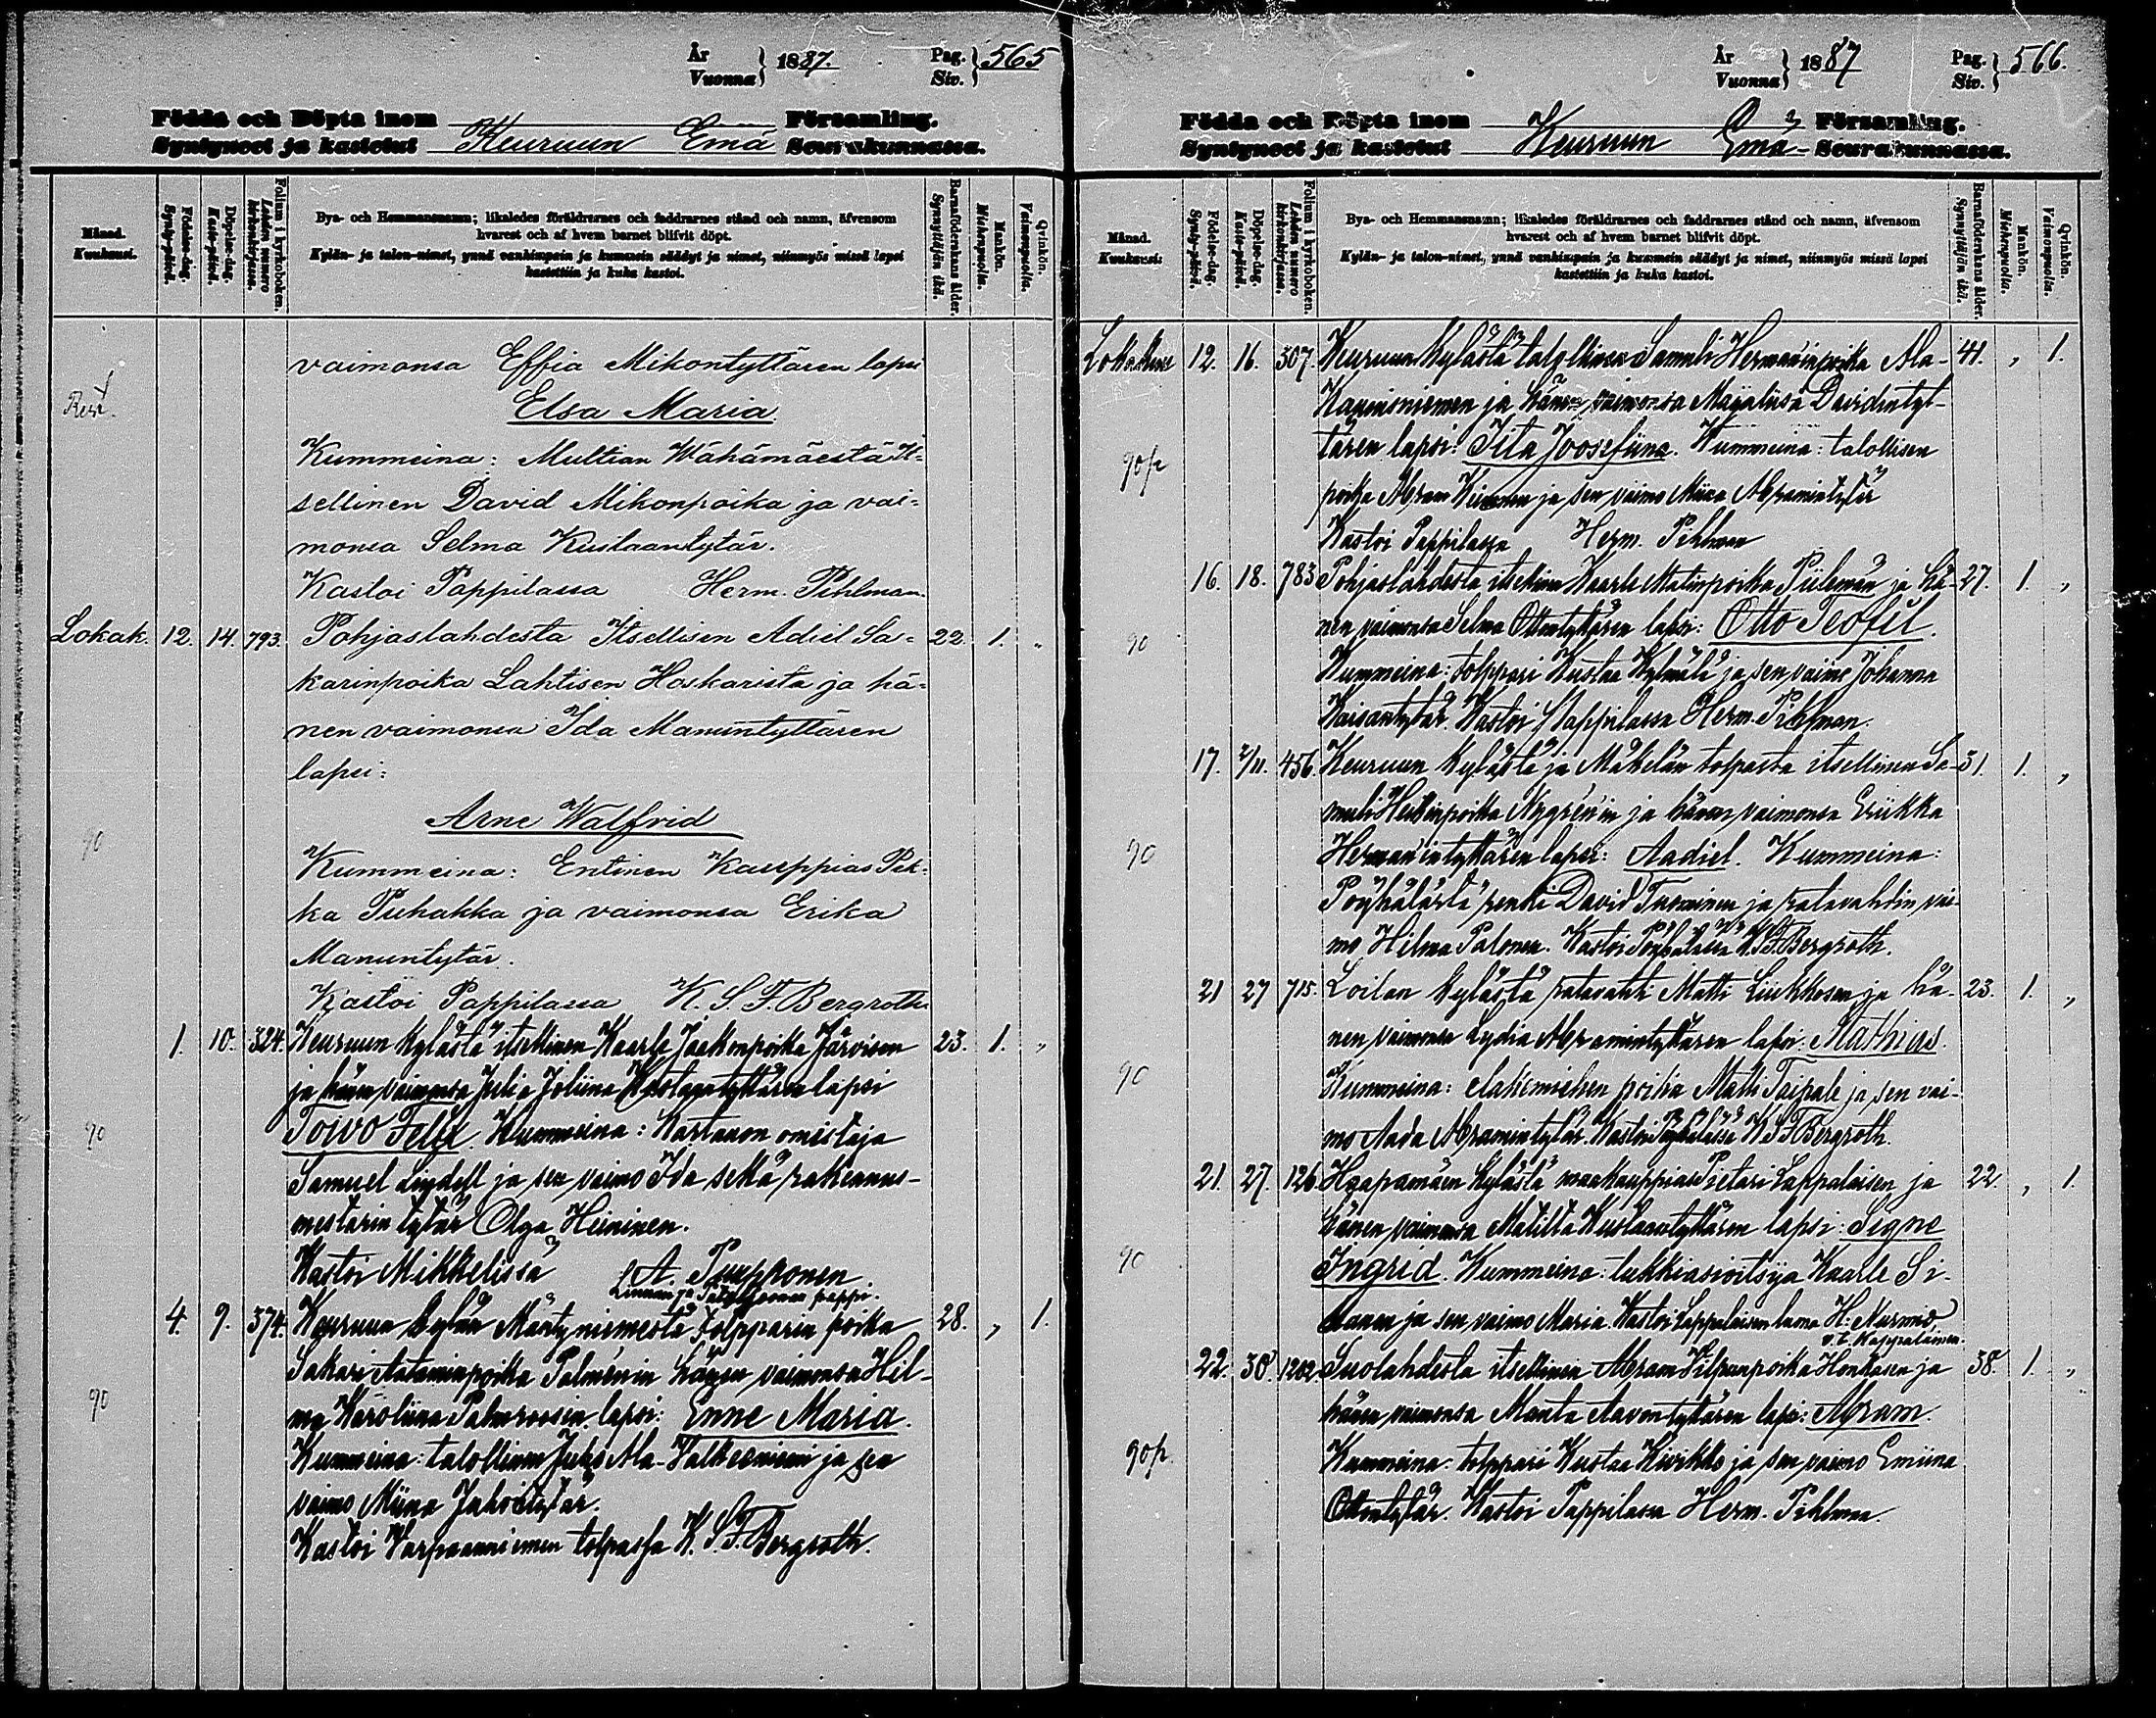 År
Vuonna } 1887. Pag.
Siv. } 565
Födda och Döpta inom Församling.
Syntyneet ja kastetut Keuruun Emä Seurakunnassa.
Månad.
Kuukausi.
Födelse-dag.
Synty-päivä.
Döpelse-dag.
Kaste-päivä.
Folium i kyrkoboken.
Lehden numero kirkonkirjassa.
Bya- och Hemmansnamn; likaledes föräldrarnes och faddrarnes stånd och namn, äfvensom
hvarest och af hvem barnet blifvit döpt.
Kylän- ja talon-nimet, ynnä vanhimpain ja kummein säädyt ja nimet, niinmyös missä lapsi
kastettiin ja kuka kastoi.
Barnaföderskans ålder.
Synnyttäjän ikä.
Mankön.
Miehenpuolia.
Qvinkön.
Vaimonpuolia.
vaimonsa Effia Mikontyttären lapsi
Elsa Maria
Kummeina: Multian Wähämäestä It-
sellinen David Mikonpoika ja vai-
monsa Selma Kustaantytär.
Kastoi Pappilassa Herm. Pihlman.
Lokak. 12. 14. 793. Pohjaslahdesta Itsellisen Adiel Sa- 22. 1. "
karinpoika Lahtisen Hoskarista ja hä-
nen vaimonsa Ida Manuntyttären
lapsi:
Arne Walfrid
90
Kummeina: Entinen Kauppias Pek-
ka Puhakka ja vaimonsa Erika
Manuntytär.
Kastoi Pappilassa K. S. F. Bergroth
1. 10. 324. Keuruun kylästä itsellinen Kaarle Jaakonpoika Järvisen 23. 1. "
ja hänen vaimonsa Julia Joliina Kustaantyttären lapsi
90 Toivo Felix. Kummeina: Kartanon omistaja
Samuel Lindell ja sen vaimo Ida sekä rakennus-
mestarin tytär Olga Heininen.
Kastoi Mikkelissä A. Pumppunen
Linnan ja pappi.
4. 9. 374. Keuruun kylän Mäntyniemestä torpparin poika 28. " 1.
Sakari Aataminpoika Palménin hänen vaimonsa Hil-
90 ma Karoliina Palmroosin lapsi: Enne Maria.
Kummeina: talollinen Juho Ala-Valkeaniemi ja sen
vaimo Miina Juhontytär.
Kastoi Varpaanniemen torpassa K. S. F. Bergroth.
År
Vuonna } 1887 Pag.
Siv. } 566.
Födda och Döpta inom Församling.
Syntyneet ja kastetut Keuruun Emä- Seurakunnassa.
Månad.
Kuukausi.
Födelse-dag.
Synty-päivä.
Döpelse-dag.
Kaste-päivä.
Folium i kyrkoboken.
Lehden numero kirkonkirjassa.
Bya- och Hemmansnamn; likaledes föräldrarnes och faddrarnes stånd och namn, äfvensom
hvarest och af hvem barnet blifvit döpt.
Kylän- ja talon-nimet, ynnä vanhimpain ja kummein säädyt ja nimet, niinmyös missä lapsi
kastettiin ja kuka kastoi.
Barnaföderskans ålder.
Synnyttäjän ikä.
Mankön.
Miehenpuolia.
Qvinkön.
Vaimonpuolia.
Lokakuu 12. 16. 307. Keuruun kylästä talollinen Samuli Herman'inpoika Ala- 41. " 1.
ja hänen vaimonsa Majaliisa Davidintyt-
90p tären lapsi: Iita Joosefiina. Kummeina: talollisen
poika Abram Keinonen ja sen vaimo Miina Abramintytär
Kastoi Pappilassa Herm. Pihlman
16. 18. 783 Pohjaslahdesta itsellinen Kaarle Matinpoika Piileman ja hä- 27. 1. "
90 nen vaimonsa Selma Ottontyttären lapsi: Otto Teofil.
Kummeina: torppari Kustaa Kylmälä ja sen vaimo Johanna
Kaisantytär. Kastoi Pappilassa Herm. Pihlman.
17. 2/11. 456. Keuruun kylästä ja Mäkelän torpasta itsellinen Sa- 31. 1. "
muli Heikinpoika Nygrén'in ja hänen vaimonsa Eriikka
90 Herman'intyttären lapsi: Aadiel. Kummeina:
Pöyhölästä renki David Tuominen ja ratavahdin vai-
mo Hilma Palonen. Kastoi Pöyhölässä K. S. F. Bergroth.
21 27 715. Loilan kylästä ratavahti Matti Liukkosen ja hä- 23. 1. "
nen vaimonsa Lydia Abramintyttären lapsi: Mathias.
90 Kummeina: elatusmiehen poika Matti Taipale ja sen vai-
mo Aada Abramintytär. Kastoi Pöyhölässä K. S. F. Bergroth.
21. 27. 126. Haapamäen kylästä maakauppias Pietari Lappalaisen ja 22 " 1.
hänen vaimonsa Matilta Kustaantyttären lapsi: Signe
90 Ingrid. Kummeina: tukkiasioitsija Kaarle Si-
ja sen vaimo Maria. Kastoi Lappalaisen luona H. Nurmio,
v. t. Kappalainen.
22. 30. 1202 Suolahdesta itsellinen Abram Vilpunpoika Honkasen ja 38. 1. "
hänen vaimonsa Manta Aavontyttären lapsi: Abram.
90p Kummeina: torppari Kustaa Kivikko ja sen vaimo Emiina
Ottontytär. Kastoi Pappilassa Herm. Pihlman